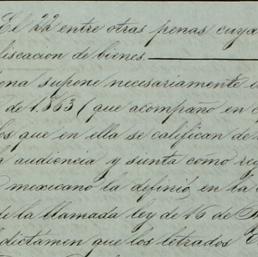 El 22 entre otras penas cuya
fiscacion de bienes.
ena supone necesariamente
de 1863 (que acompaño en c
los que en ella se califican de
audiencia y sunta como reg
mexicano la definió, en la
de la llamada ley de 16 de
dictámen que los letrados